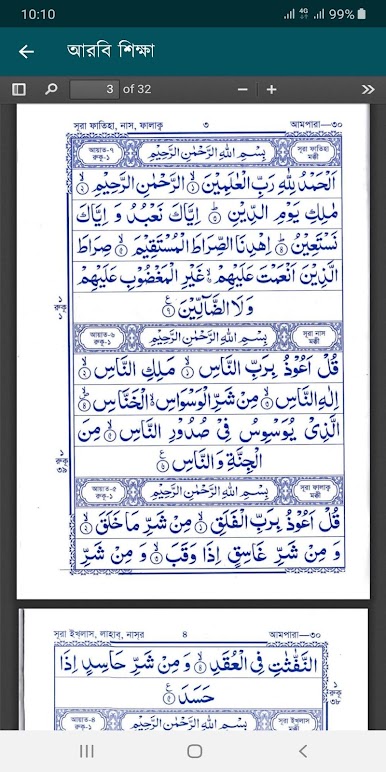 10:10 4G 99%
আরবি শিক্ষা
3 of 32
সূরা ফাতিহা, নাস, ফালাক্ব ৩ আমপারা—৩০
আয়াত-৭ রুকূ-১ بِسْمِ اللهِ الرَّحْمٰنِ الرَّحِيْمِ সূরা ফাতিহা মক্কী
اَلْحَمْدُ لِلّٰهِ رَبِّ الْعٰلَمِيْنَ ۙ﴿١﴾ الرَّحْمٰنِ الرَّحِيْمِ ۙ﴿٢﴾
مٰلِكِ يَوْمِ الدِّيْنِ ﴿٣﴾ اِيَّاكَ نَعْبُدُ وَ اِيَّاكَ
نَسْتَعِيْنُ ﴿٤﴾ اِهْدِنَا الصِّرَاطَ الْمُسْتَقِيْمَ ۙ﴿٥﴾ صِرَاطَ
الَّذِيْنَ اَنْعَمْتَ عَلَيْهِمْ ۙ﴿٦﴾ غَيْرِ الْمَغْضُوْبِ عَلَيْهِمْ
وَلَا الضَّآلِّيْنَ ﴿٧﴾
আয়াত-৬ রুকূ-১ بِسْمِ اللهِ الرَّحْمٰنِ الرَّحِيْمِ সূরা নাস মক্কী
قُلْ اَعُوْذُ بِرَبِّ النَّاسِ ۙ﴿١﴾ مَلِكِ النَّاسِ ۙ﴿٢﴾
اِلٰهِ النَّاسِ ۙ﴿٣﴾ مِنْ شَرِّ الْوَسْوَاسِ ۙ الْخَنَّاسِ ۙ﴿٤﴾
الَّذِىْ يُوَسْوِسُ فِىْ صُدُوْرِ النَّاسِ ۙ﴿٥﴾ مِنَ
الْجِنَّةِ وَالنَّاسِ ﴿٦﴾
রুকূ ৩৯
আয়াত-৫ রুকূ-১ بِسْمِ اللهِ الرَّحْمٰنِ الرَّحِيْمِ সূরা ফালাক্ব মক্কী
قُلْ اَعُوْذُ بِرَبِّ الْفَلَقِ ۙ﴿١﴾ مِنْ شَرِّ مَا خَلَقَ ۙ﴿٢﴾
وَ مِنْ شَرِّ غَاسِقٍ اِذَا وَقَبَ ۙ﴿٣﴾ وَ مِنْ شَرِّ
সূরা ইখলাস, লাহাব, নাস্‌র ৪ আমপারা—৩০
النَّفّٰثٰتِ فِى الْعُقَدِ ۙ﴿٤﴾ وَ مِنْ شَرِّ حَاسِدٍ اِذَا
حَسَدَ ﴿٥﴾
রুকূ ৩৮
আয়াত-৪ রুকূ-১ بِسْمِ اللهِ الرَّحْمٰنِ الرَّحِيْمِ সূরা ইখলাস মক্কী